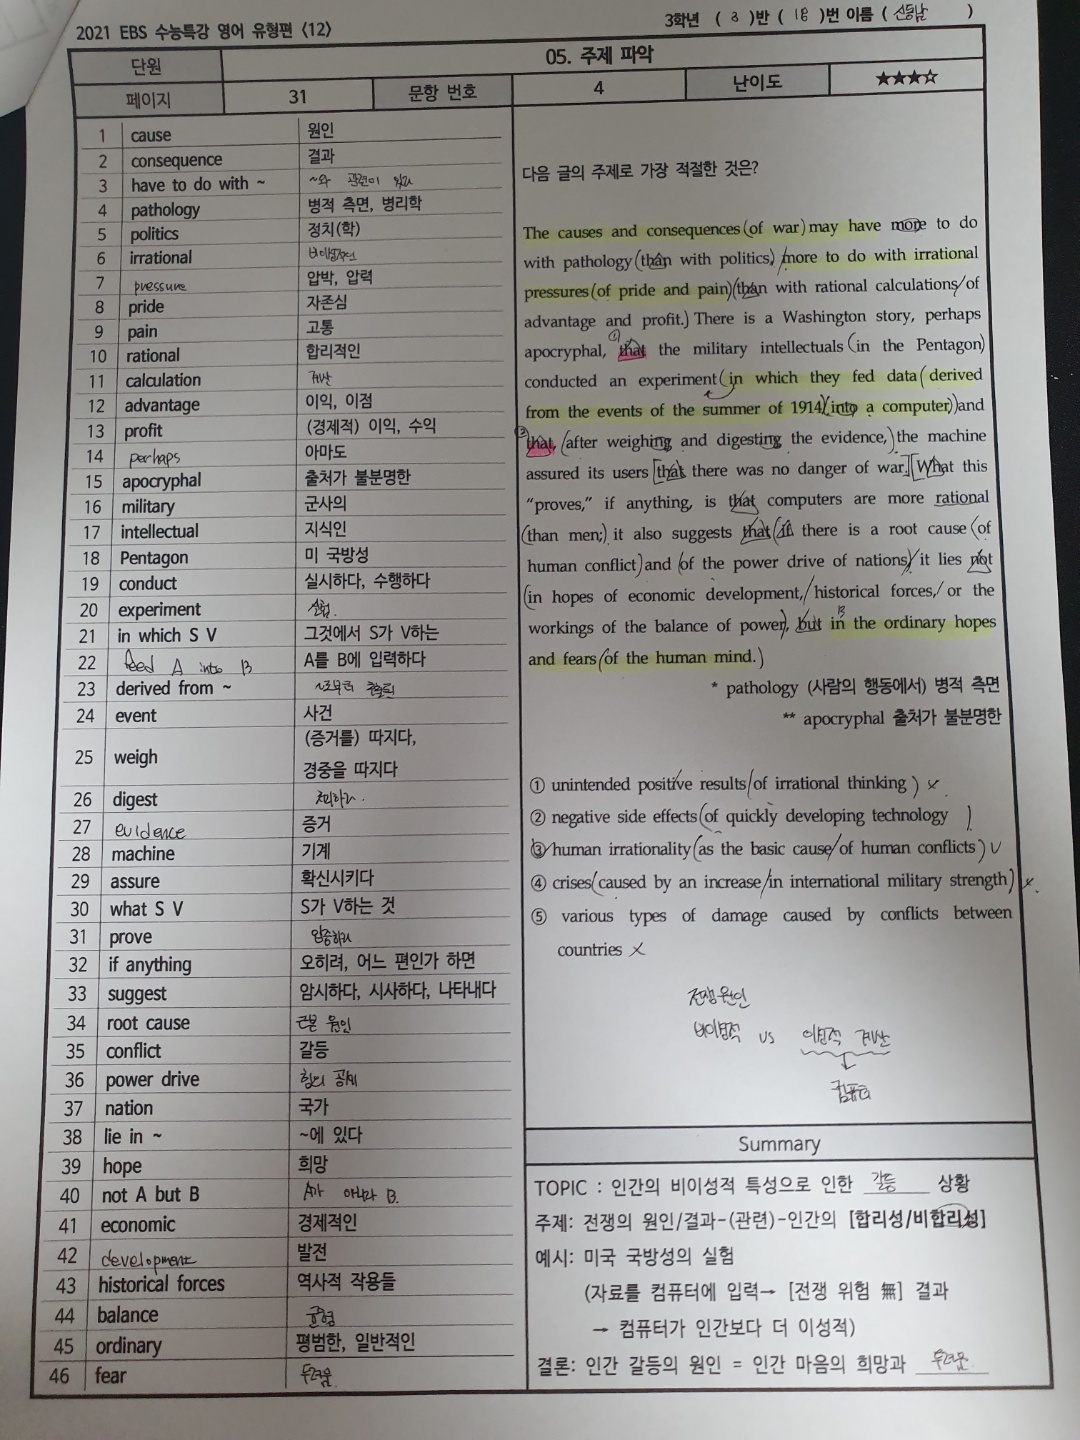 2021 EBS 수능특강 영어 유형편 <12>
3학년 ( 3 )반 ( 18 )번 이름 ( )
단원 05. 주제 파악
페이지 31 문항 번호 4 난이도 ★★★☆
1 cause 원인
2 consequence 결과
3 have to do with ~ ~와 관련이 있다
4 pathology 병적 측면, 병리학
5 politics 정치(학)
6 irrational
7 pressure 압박, 압력
8 pride 자존심
9 pain 고통
10 rational 합리적인
11 calculation 계산
12 advantage 이익, 이점
13 profit (경제적) 이익, 수익
14 perhaps 아마도
15 apocryphal 출처가 불분명한
16 military 군사의
17 intellectual 지식인
18 Pentagon 미 국방성
19 conduct 실시하다, 수행하다
20 experiment 실험.
21 in which S V 그것에서 S가 V하는
22 feed A into B A를 B에 입력하다
23 derived from ~ ~로부터
24 event 사건
25 weigh (증거를) 따지다,
경중을 따지다
26 digest
27 evidence 증거
28 machine 기계
29 assure 확신시키다
30 what S V S가 V하는 것
31 prove 입증하다
32 if anything 오히려, 어느 편인가 하면
33 suggest 암시하다, 시사하다, 나타내다
34 root cause 근본 원인
35 conflict 갈등
36 power drive 힘의
37 nation 국가
38 lie in ~ ~에 있다
39 hope 희망
40 not A but B A가 아니라 B.
41 economic 경제적인
42 development 발전
43 historical forces 역사적 작용들
44 balance 균형
45 ordinary 평범한, 일반적인
46 fear 두려움.
다음 글의 주제로 가장 적절한 것은?
The causes and consequences (of war) may have more to do
with pathology (than with politics,) more to do with irrational
pressures (of pride and pain) (than with rational calculations/of
advantage and profit.) There is a Washington story, perhaps
①
apocryphal, that the military intellectuals (in the Pentagon)
conducted an experiment (in which they fed data (derived
from the events of the summer of 1914) (into a computer)) and
② that, (after weighing and digesting the evidence,) the machine
assured its users [that there was no danger of war.] [What this
“proves,” if anything, is that computers are more rational
(than men;) it also suggests that (if there is a root cause (of
human conflict) and (of the power drive of nations)/ it lies not
(in hopes of economic development,/historical forces,/or the
workings of the balance of power), but in the ordinary hopes
B
and fears (of the human mind.)
* pathology (사람의 행동에서) 병적 측면
** apocryphal 출처가 불분명한
① unintended positive results/(of irrational thinking) ×.
② negative side effects (of quickly developing technology )
③ human irrationality (as the basic cause/of human conflicts) ∨
④ crises (caused by an increase/in international military strength) ×.
⑤ various types of damage caused by conflicts between
countries ×
전쟁원인
비이성적 vs 이성적 계산
↓
컴퓨터
Summary
TOPIC : 인간의 비이성적 특성으로 인한 갈등 상황
주제: 전쟁의 원인/결과-(관련)-인간의 [합리성/비합리성]
예시: 미국 국방성의 실험
(자료를 컴퓨터에 입력→ [전쟁 위험 無] 결과
→ 컴퓨터가 인간보다 더 이성적)
결론: 인간 갈등의 원인 = 인간 마음의 희망과 두려움